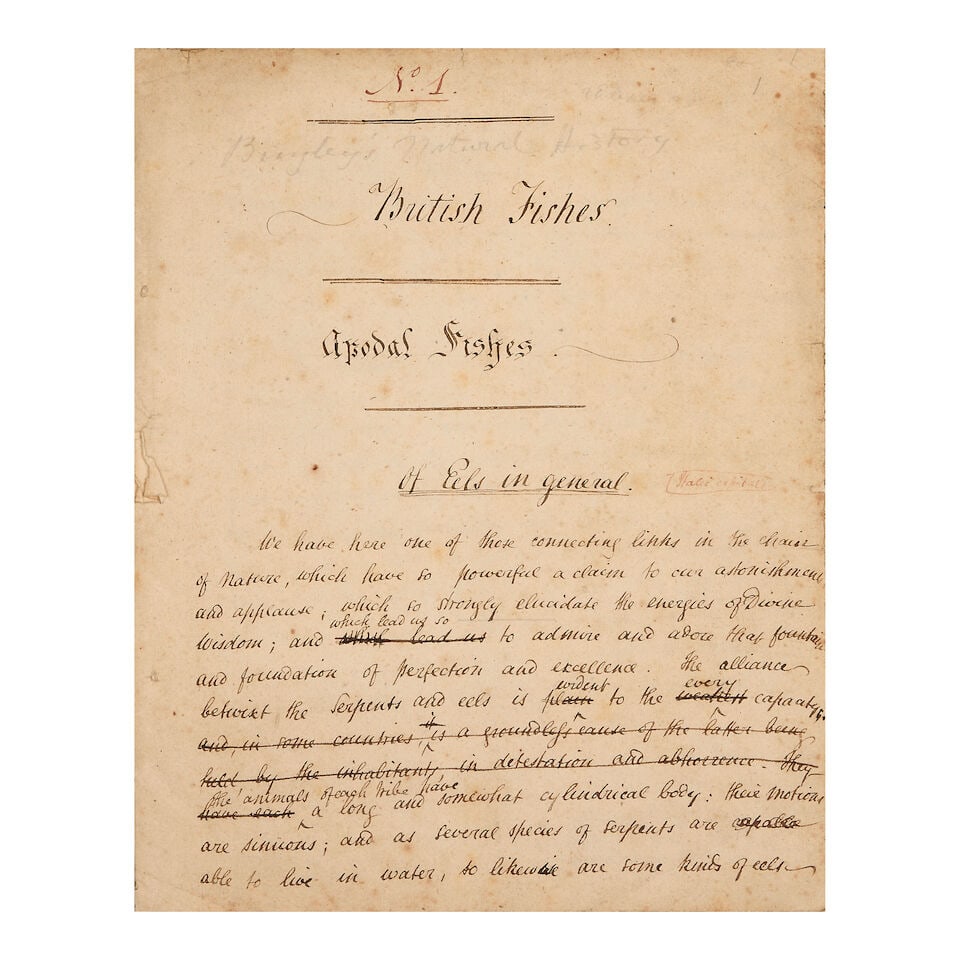 No. 1.
1
Bingley's Natural History
British Fishes.
Apodal Fishes.
Of Eels in general.
We have here one of those connecting links in the chain
of Nature, which have so powerful a claim to our astonishment
and applause; which so strongly elucidate the energies of Divine
which lead us so
Wisdom; and which lead us to admire and adore that fountain
and foundation of perfection and excellence. The alliance
evident every
betwixt the Serpents and eels is plain to the weakest capacity;
it
and, in some countries, is a groundless cause of the latter being
held by the inhabitants in detestation and abhorrence. They
The animals of each tribe have
have each a long and somewhat cylindrical body: their motions
are sinuous; and as several species of serpents are capable
able to live in water, so likewise are some kinds of eels